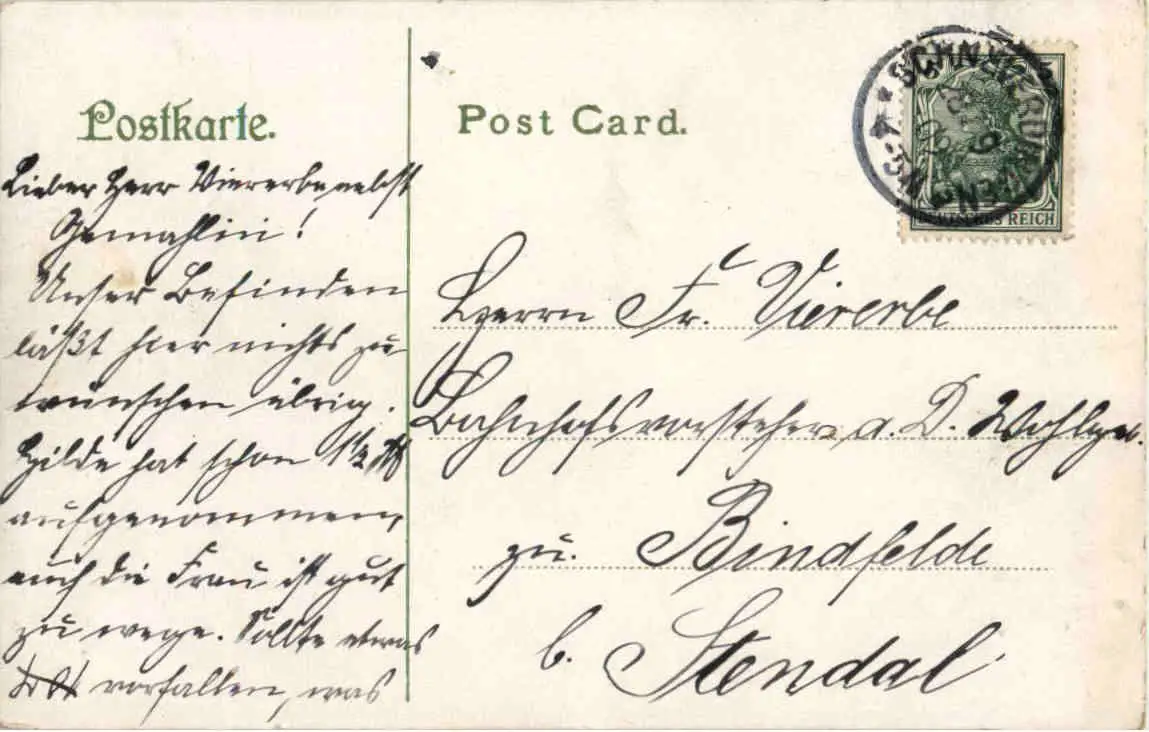 Postkarte.
Lieber Herr Viererbe nebst
Gemahlin!
Unser Befinden
läßt hier nichts zu
wünschen übrig.
Hilde hat schon 1½ ℔
aufgenommen,
auch die Frau ist gut
zu wege. Sollte etwas
vorfallen, was
Post Card.
SCHNEVERDINGEN
DEUTSCHES REICH
Herrn Fr. Viererbe
Bahnhofsvorsteher a. D. Wohlgeb.
zu. Bindfelde
b. Stendal